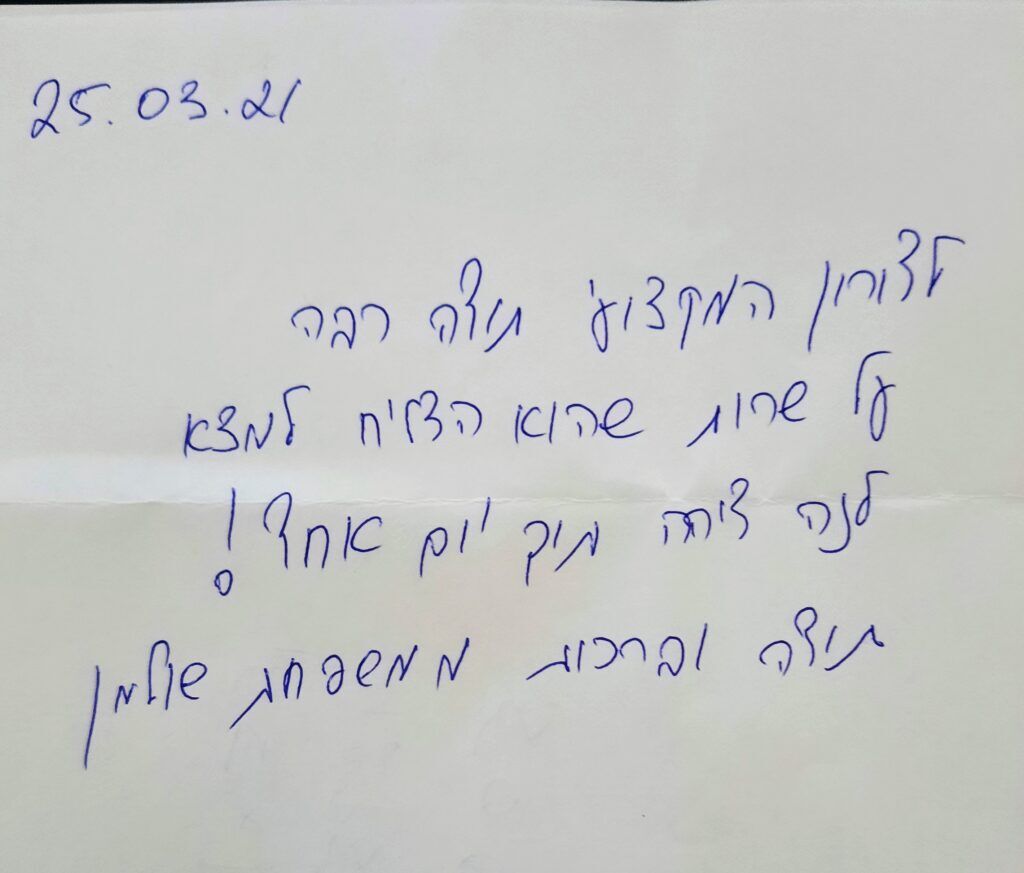 25.03.21
לדורון המקצועי תודה רבה
על שרות שהוא הצליח למצא
לנה דירה תוך יום אחד!
תודה וברכות ממשפחת שולמן